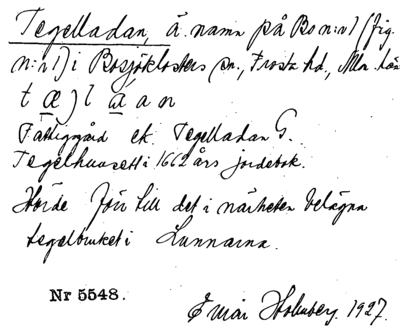 Tegelladan, ä. namn på Bo n:r 1 (fig.
n:r 1) i Bosjöklosters sn., Frosta hd., Mlm. län
t æ) l á a n
Fattiggård ek. Tegelladan G.
Tegelhuusett i 1662 års jordebok.
Hörde förr till det i närheten belägna
tegelbruket i Lunnarna.
Nr 5548.
Emar Holmberg. 1927.